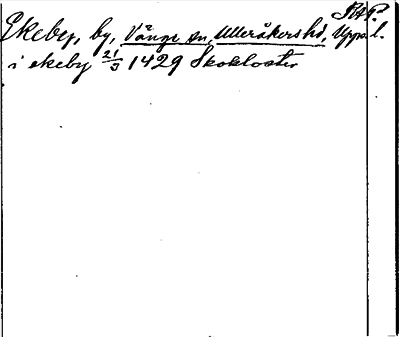 RAP.
Ekeby, by, Vänge sn, Ulleråkers hd, Upps. l.
i ekeby 21/3 1429 Skokloster